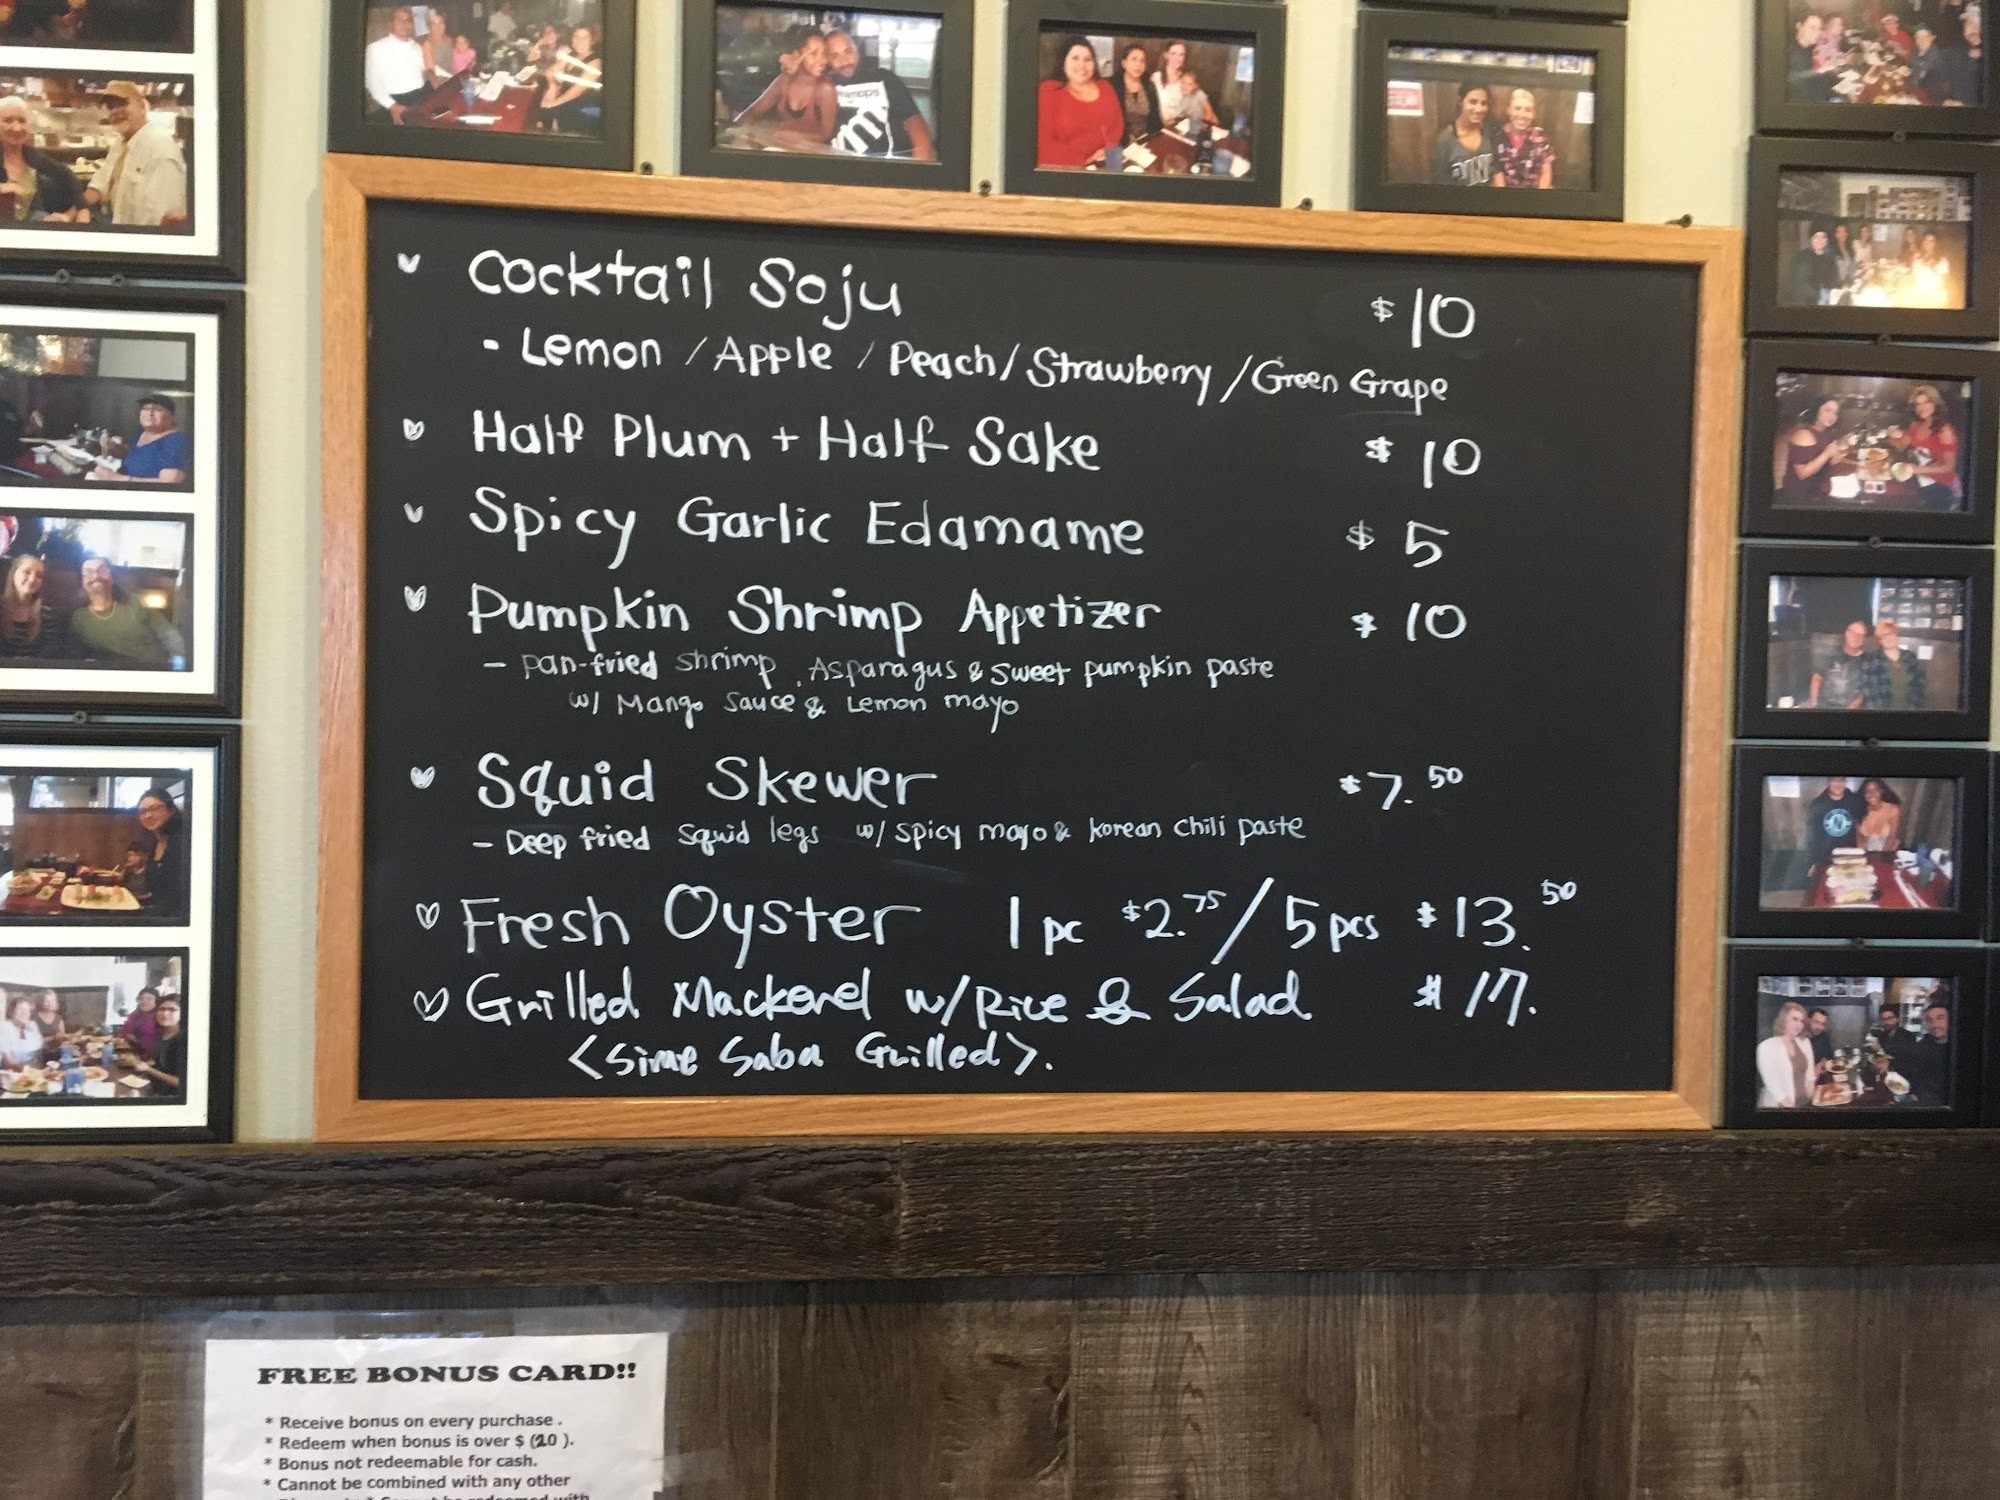 Cocktail Soju $10
- Lemon / Apple / Peach / Strawberry / Green Grape
Half Plum + Half Sake $10
Spicy Garlic Edamame $5
Pumpkin Shrimp Appetizer $10
- Pan-fried shrimp, Asparagus & sweet pumpkin paste
w/ Mango sauce & Lemon mayo
Squid Skewer $7.50
- Deep fried squid legs w/ spicy mayo & korean chili paste
Fresh Oyster 1 pc $2.75 / 5 pcs $13.50
Grilled Mackerel w/ Rice & Salad $17.
<Sime Saba Grilled>.
FREE BONUS CARD!!
* Receive bonus on every purchase .
* Redeem when bonus is over $ (20 ).
* Bonus not redeemable for cash.
* Cannot be combined with any other